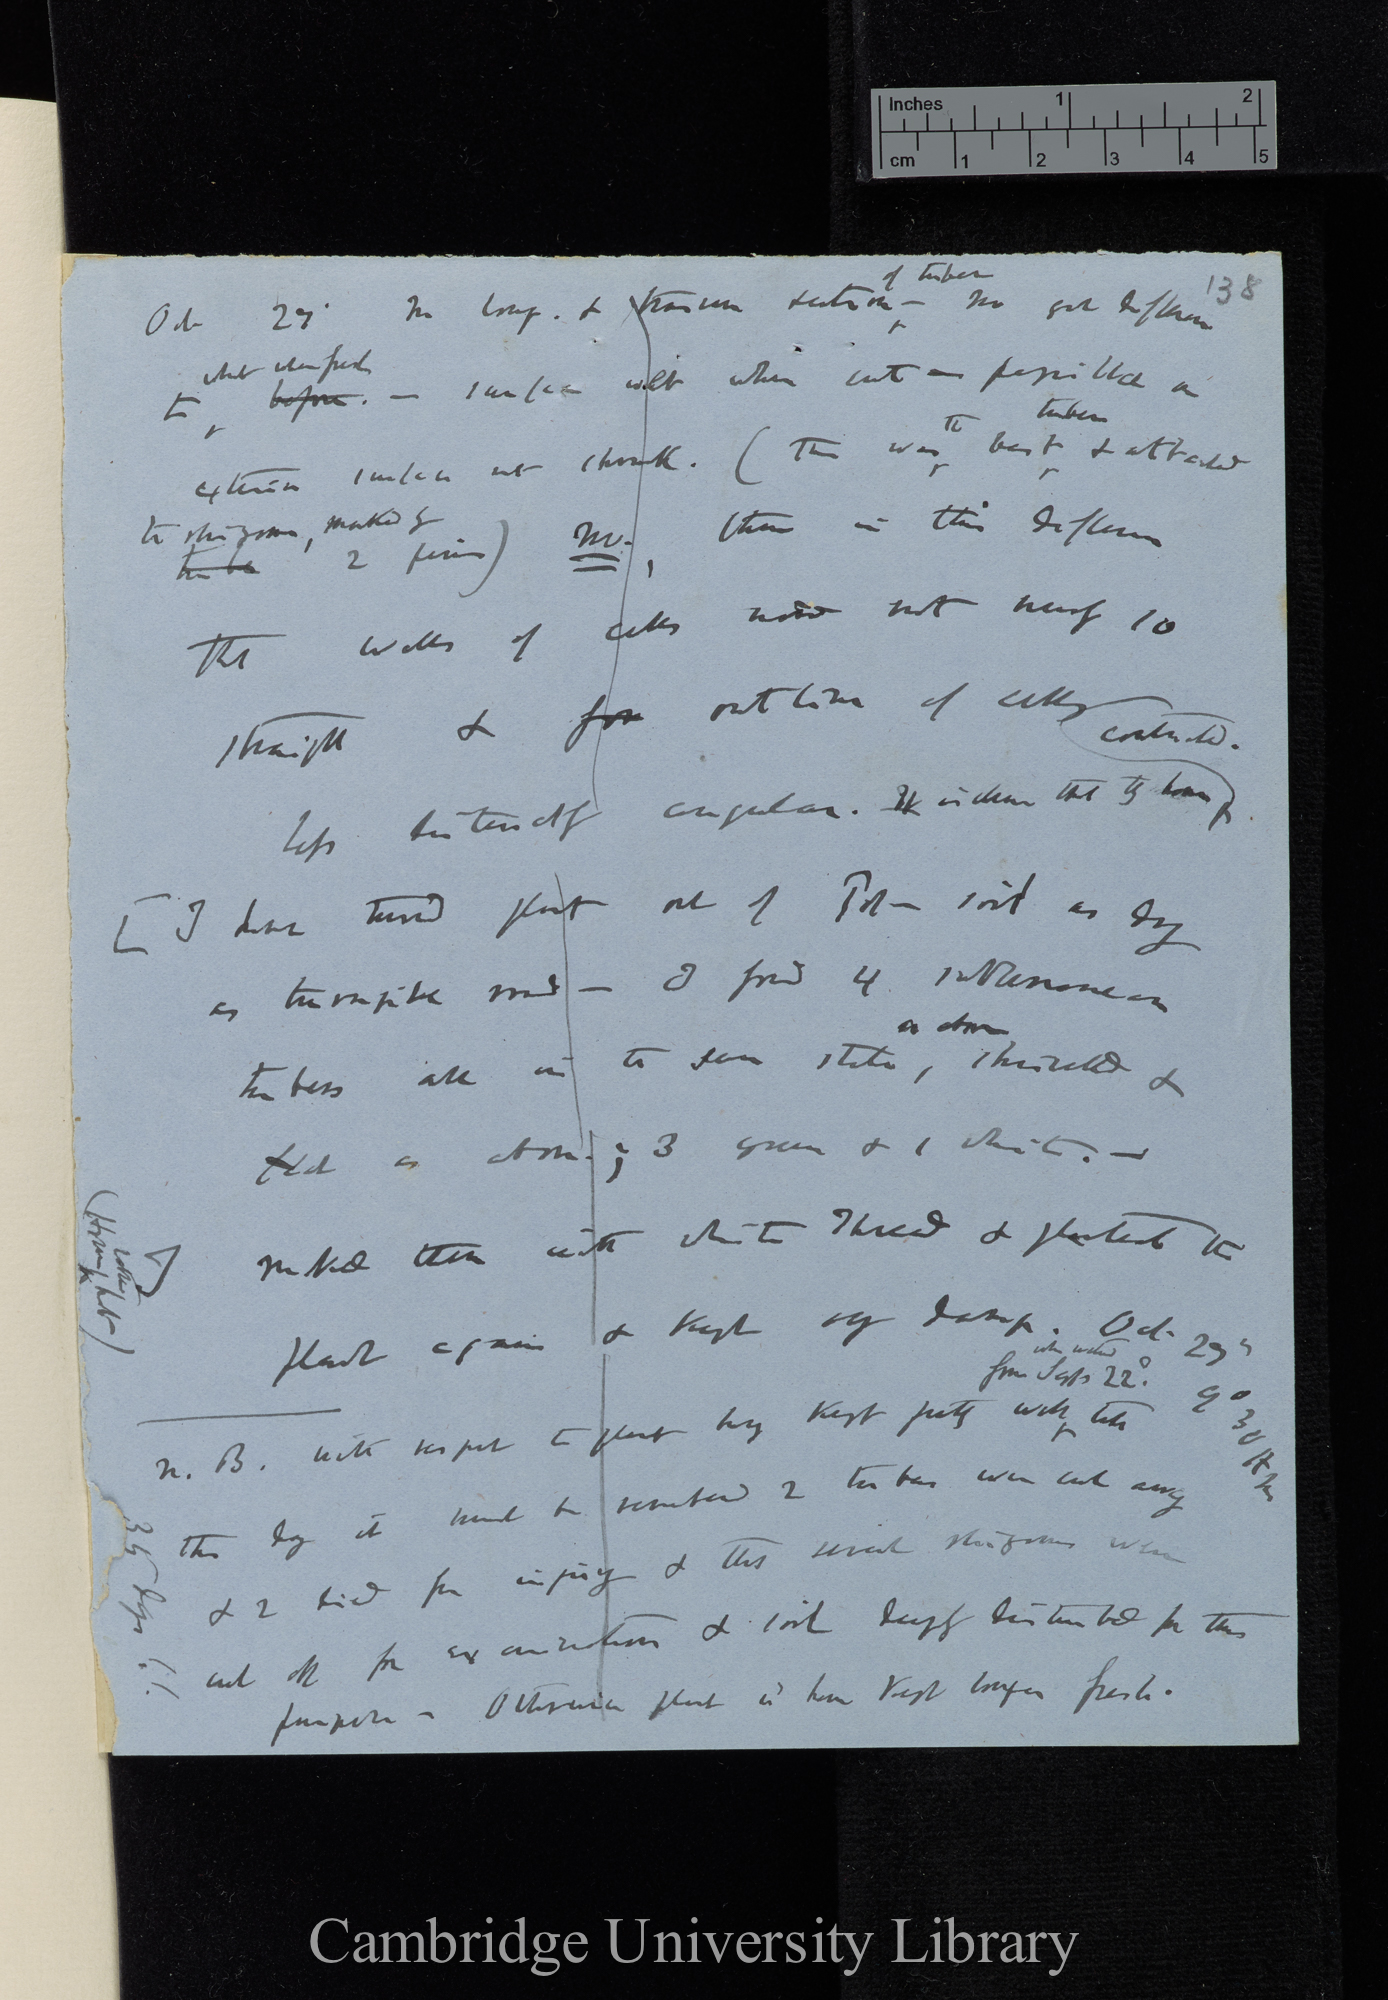 Inches 1 2
cm 1 2 3 4 5
138
of tubers
Oct 29 No long. & transv section — no gt difference
what when fresh
to before. — surface when cut — papillae on
the tubers
exterior surface not shrunk. (This was best & attached
to rhizome, making
tube 2 pieces) No. there is this difference
The walls of cells now not nearly so
straight & for outline of cells
contracted.
less distinctly angular. It is clear that they have
[ I have turned plant out of Pot — soil as dry
as turnpike road — I find 4 subterranean
as above
tubers all in the same state, shrivelled &
as above; 3 green & 1 white. —
marked them with white Thread & planted the
plant again & kept soil damp. Oct. 29th
when watered
from Sept 22d.
N. B. with respect to plant being kept pretty well till
this day it must be remembered 2 tubers were cut away
& 2 died from injury & that several rhizomes were
cut off for examination & soil deeply disturbed for this
purpose — Otherwise plant would have kept longer fresh.
35 days!!
Cambridge University Library